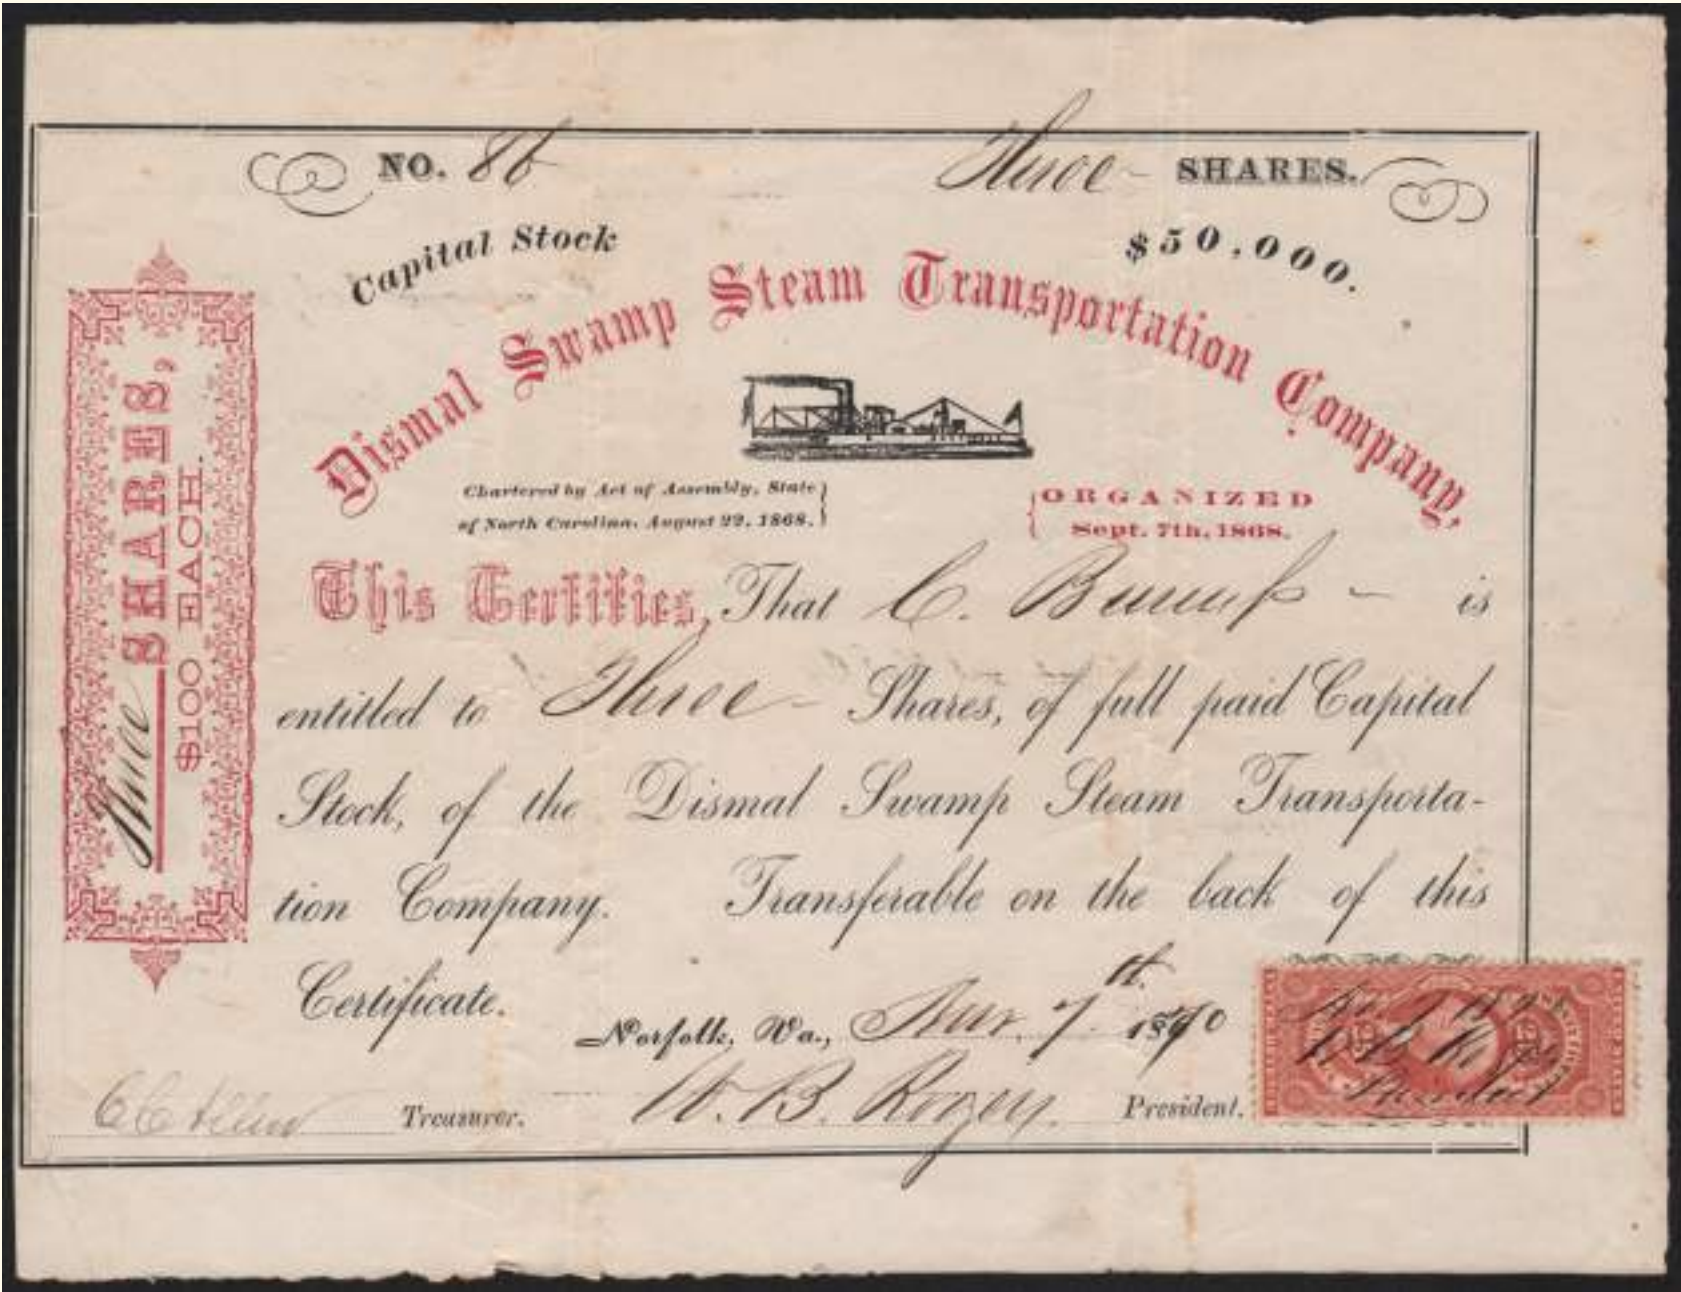 NO. 86 Three SHARES.
Capital Stock $50,000.
Dismal Swamp Steam Transportation Company,
Chartered by Act of Assembly, State
of North Carolina, August 22, 1868.
ORGANIZED
Sept. 7th, 1868.
Three SHARES,
$100 EACH.
This Certifies, That C. is
entitled to Three Shares, of full paid Capital
Stock, of the Dismal Swamp Steam Transporta-
tion Company. Transferable on the back of this
Certificate.
Norfolk, Va., 7th. 1870
Treasurer. W. B. Rogers. President.